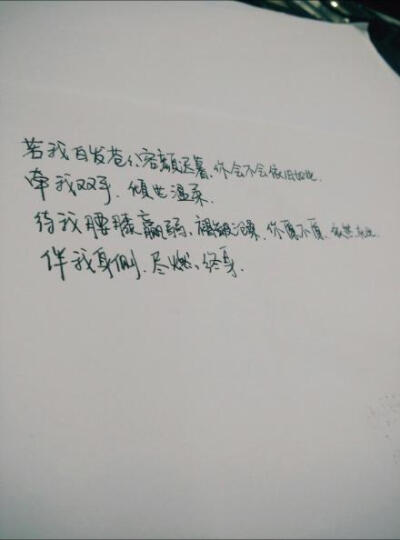 若我白发苍苍容颜迟暮，你会不会依旧如此
牵我双手，倾世温柔
待我腰膝羸弱，褶皱，你愿不愿，依然
伴我身侧，尽燃，终身.